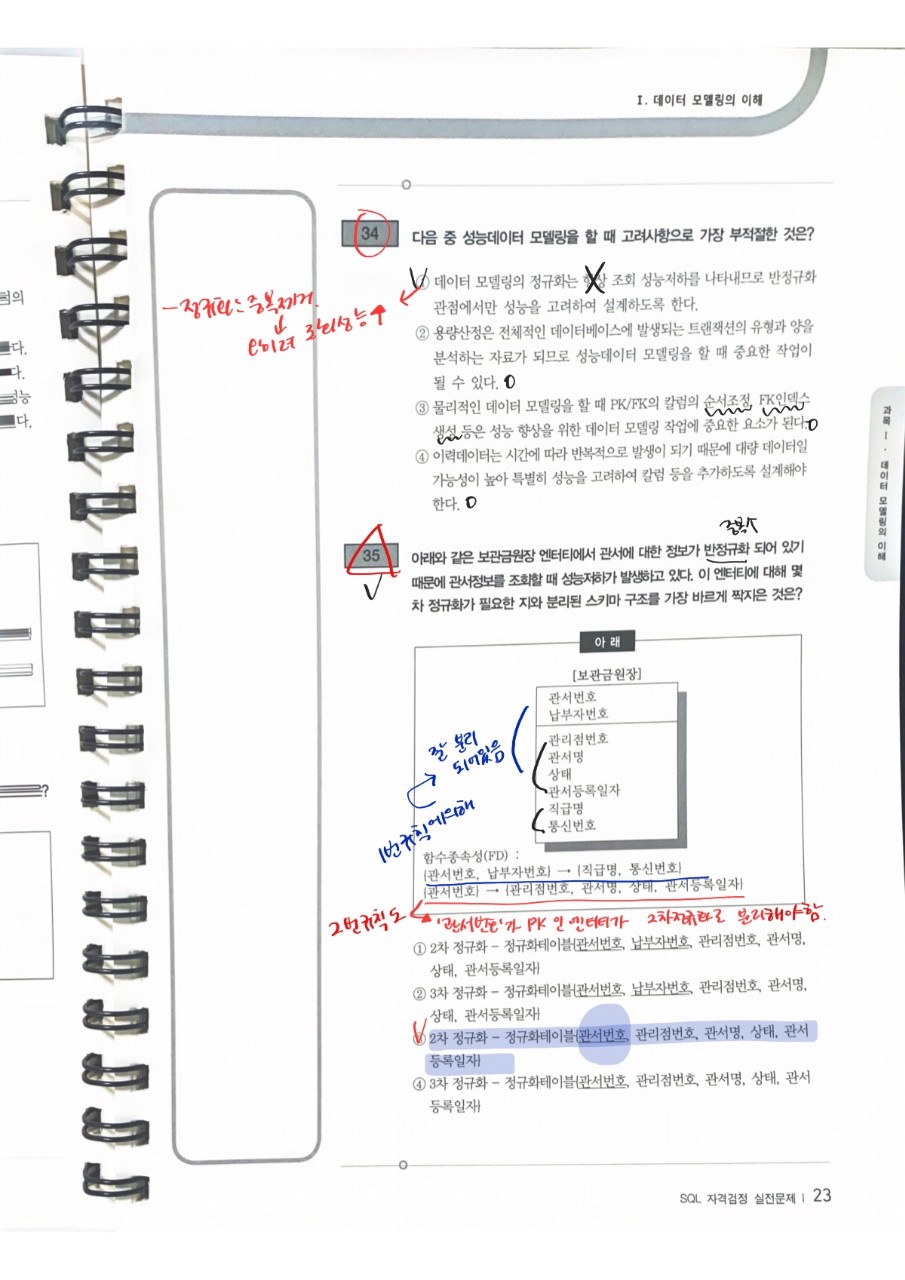 I. 데이터 모델링의 이해
34 다음 중 성능데이터 모델링을 할 때 고려사항으로 가장 부적절한 것은?
① 데이터 모델링의 정규화는 항상 조회 성능저하를 나타내므로 반정규화
관점에서만 성능을 고려하여 설계하도록 한다.
- 정규화는 중복제거.
조회성능↑
② 용량산정은 전체적인 데이터베이스에 발생되는 트랜잭션의 유형과 양을
분석하는 자료가 되므로 성능데이터 모델링을 할 때 중요한 작업이
될 수 있다. O
③ 물리적인 데이터 모델링을 할 때 PK/FK의 칼럼의 순서조정, FK인덱스
생성 등은 성능 향상을 위한 데이터 모델링 작업에 중요한 요소가 된다. O
④ 이력데이터는 시간에 따라 반복적으로 발생이 되기 때문에 대량 데이터일
가능성이 높아 특별히 성능을 고려하여 칼럼 등을 추가하도록 설계해야
한다. O
중복↑
35 아래와 같은 보관금원장 엔터티에서 관서에 대한 정보가 반정규화 되어 있기
때문에 관서정보를 조회할 때 성능저하가 발생하고 있다. 이 엔터티에 대해 몇
차 정규화가 필요한 지와 분리된 스키마 구조를 가장 바르게 짝지은 것은?
아 래
[보관금원장]
관서번호
납부자번호
관리점번호
관서명
상태
관서등록일자
직급명
통신번호
잘 분리
되어있음
1번규칙에의해
함수종속성(FD) :
{관서번호, 납부자번호} → {직급명, 통신번호}
{관서번호} → {관리점번호, 관서명, 상태, 관서등록일자}
2번규칙도 '관서번호'가 PK 인 엔터티가 2차정규화로 분리해야함.
① 2차 정규화 - 정규화테이블{관서번호, 납부자번호, 관리점번호, 관서명,
상태, 관서등록일자}
② 3차 정규화 - 정규화테이블{관서번호, 납부자번호, 관리점번호, 관서명,
상태, 관서등록일자}
③ 2차 정규화 - 정규화테이블{관서번호, 관리점번호, 관서명, 상태, 관서
등록일자}
④ 3차 정규화 - 정규화테이블{관서번호, 관리점번호, 관서명, 상태, 관서
등록일자}
과목 I · 데이터 모델링의 이해
SQL 자격검정 실전문제 | 23